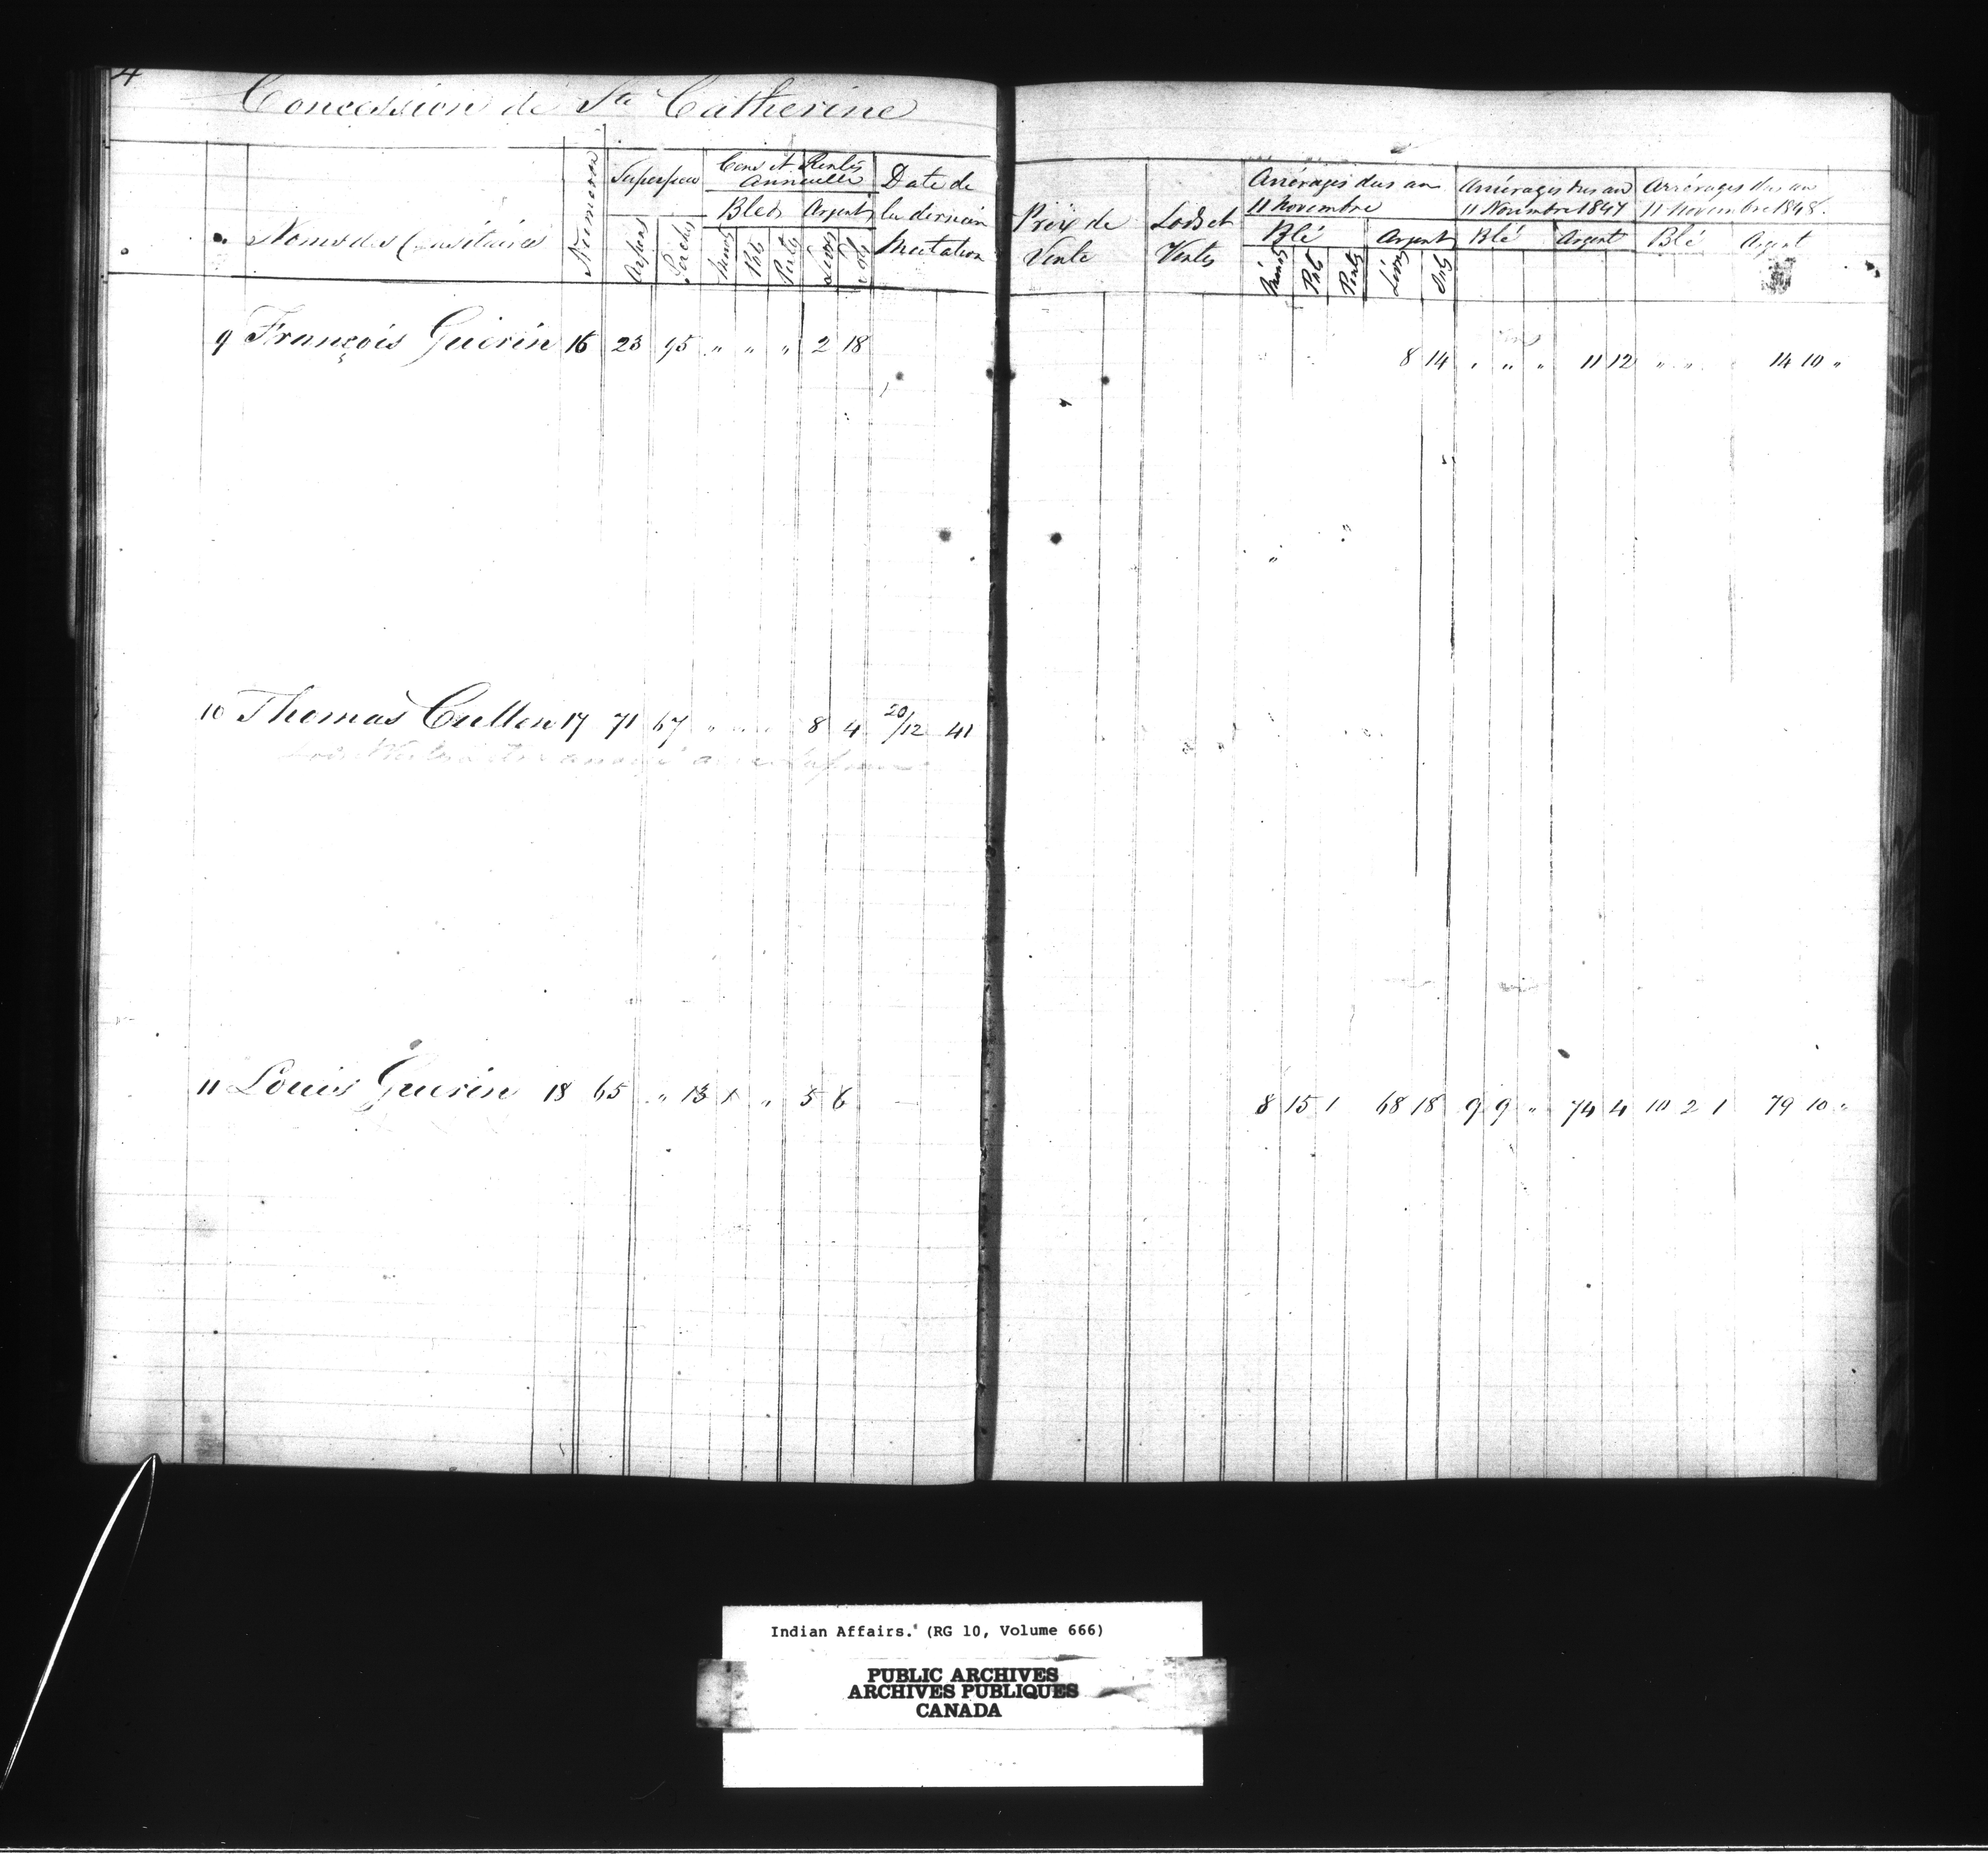 4
Concession de Ste Catherine
Noms des Censitaires
Numeros
Superficie
Arpens
Perches
Cens et Rentes
Annuelle
Bled
Argent
Minots
Pots
Pintes
Livres
Sols
Date de
la derniere
Mutation
Prix de
Vente
Lods et
Ventes
Arrérages dus au
11 Novembre
Blé
Argent
Minots
Pots
Pintes
Livres
Sols
Arrérages dus au
11 Novembre 1847
Blé
Argent
Arrérages dus au
11 Novembre 1848.
Blé
Argent
9 François Guérin 16 23 95 " " " 2 18 8 14 " " " 11 12 " " 14 10 "
10 Thomas Cullen 17 71 67 " " " 8 4 20/12 41
11 Louis Guerin 18 65 " 13 1 " 5 6 8 15 1 68 18 9 9 " 74 4 10 2 1 79 10 "
Indian Affairs. (RG 10, Volume 666)
PUBLIC ARCHIVES
ARCHIVES PUBLIQUES
CANADA